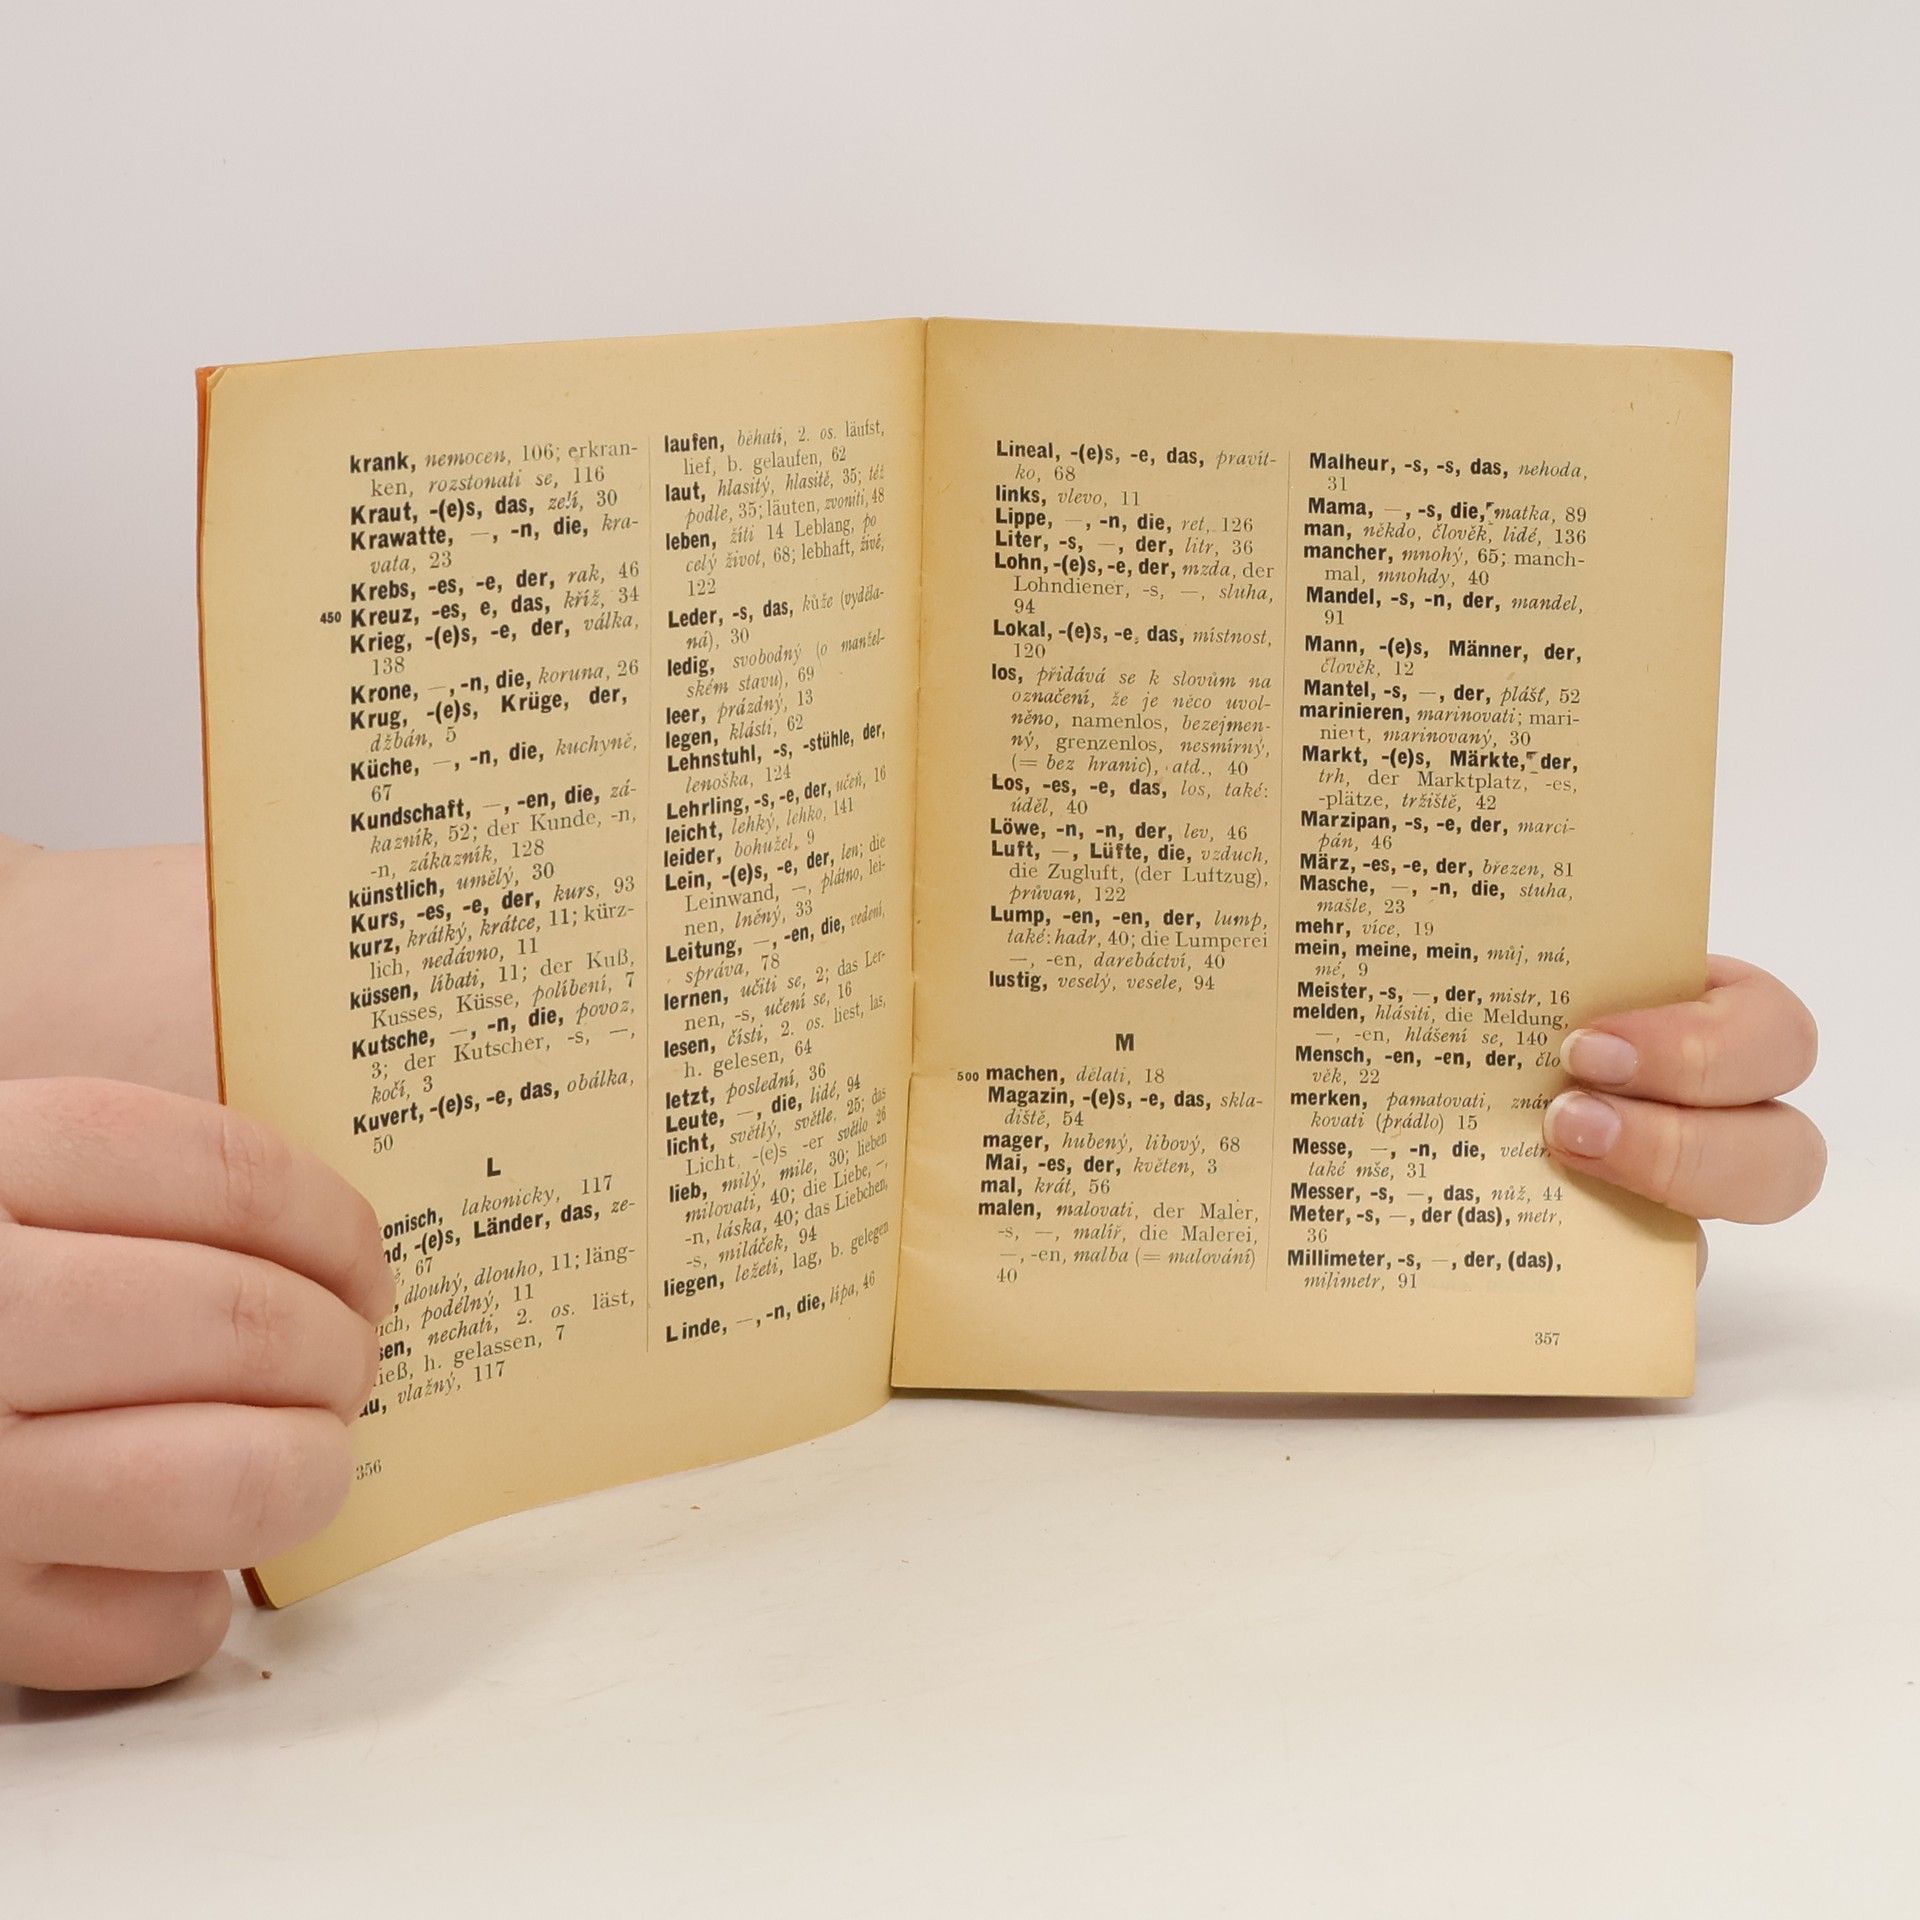 krank, nemocen, 106; erkran-
ken, rozstonati se, 116
Kraut, -(e)s, das, zelí, 30
Krawatte, —, -n, die, kra-
vata, 23
Krebs, -es, -e, der, rak, 46
450 Kreuz, -es, e, das, kříž, 34
Krieg, -(e)s, -e, der, válka,
138
Krone, —, -n, die, koruna, 26
Krug, -(e)s, Krüge, der,
džbán, 5
Küche, —, -n, die, kuchyně,
67
Kundschaft, —, -en, die, zá-
kazník, 52; der Kunde, -n,
-n, zákazník, 128
künstlich, umělý, 30
Kurs, -es, -e, der, kurs, 93
kurz, krátký, krátce, 11; kürz-
lich, nedávno, 11
küssen, líbati, 11; der Kuß,
Kusses, Küsse, políbení, 7
Kutsche, —, -n, die, povoz,
3; der Kutscher, -s, —,
kočí, 3
Kuvert, -(e)s, -e, das, obálka,
50
L
onisch, lakonicky, 117
nd, -(e)s, Länder, das, ze-
67
dlouhý, dlouho, 11; läng-
ich, podélný, 11
sen, nechati, 2. os. läst,
ieß, h. gelassen, 7
au, vlažný, 117
356
laufen, běhati, 2. os. läufst,
lief, b. gelaufen, 62
laut, hlasitý, hlasitě, 35; též
podle, 35; läuten, zvoniti, 48
leben, žíti 14 Leblang, po
celý život, 68; lebhaft, živě,
122
Leder, -s, das, kůže (vyděla-
ná), 30
ledig, svobodný (o manžel-
ském stavu), 69
leer, prázdný, 13
legen, klásti, 62
Lehnstuhl, -s, -stühle, der,
lenoška, 124
Lehrling, -s, -e, der, učeň, 16
leicht, lehký, lehko, 141
leider, bohužel, 9
Lein, -(e)s, -e, der, len; die
Leinwand, —, plátno, lei-
nen, lněný, 33
Leitung, —, -en, die, vedení,
správa, 78
lernen, učiti se, 2; das Ler-
nen, -s, učení se, 16
lesen, čísti, 2. os. liest, las,
h. gelesen, 64
letzt, poslední, 36
Leute, —, die, lidé, 94
licht, světlý, světle, 25; das
Licht, -(e)s -er světlo 26
lieb, milý, mile, 30; lieben
milovati, 40; die Liebe, —,
-n, láska, 40; das Liebchen,
-s, miláček, 94
liegen, ležeti, lag, b. gelegen
Linde, —, -n, die, lípa, 46
Lineal, -(e)s, -e, das, pravít-
ko, 68
links, vlevo, 11
Lippe, —, -n, die, ret, 126
Liter, -s, —, der, litr, 36
Lohn, -(e)s, -e, der, mzda, der
Lohndiener, -s, —, sluha,
94
Lokal, -(e)s, -e, das, místnost,
120
los, přidává se k slovům na
označení, že je něco uvol-
něno, namenlos, bezejmen-
ný, grenzenlos, nesmírný,
(= bez hranic), atd., 40
Los, -es, -e, das, los, také:
úděl, 40
Löwe, -n, -n, der, lev, 46
Luft, —, Lüfte, die, vzduch,
die Zugluft, (der Luftzug),
průvan, 122
Lump, -en, -en, der, lump,
také: hadr, 40; die Lumperei
—, -en, darebáctví, 40
lustig, veselý, vesele, 94
M
500 machen, dělati, 18
Magazin, -(e)s, -e, das, skla-
diště, 54
mager, hubený, libový, 68
Mai, -es, der, květen, 3
mal, krát, 56
malen, malovati, der Maler,
-s, —, malíř, die Malerei,
—, -en, malba (= malování)
40
Malheur, -s, -s, das, nehoda,
31
Mama, —, -s, die, matka, 89
man, někdo, člověk, lidé, 136
mancher, mnohý, 65; manch-
mal, mnohdy, 40
Mandel, -s, -n, der, mandel,
91
Mann, -(e)s, Männer, der,
člověk, 12
Mantel, -s, —, der, plášť, 52
marinieren, marinovati; mari-
niert, marinovaný, 30
Markt, -(e)s, Märkte, der,
trh, der Marktplatz, -es,
-plätze, tržiště, 42
Marzipan, -s, -e, der, marci-
pán, 46
März, -es, -e, der, březen, 81
Masche, —, -n, die, stuha,
mašle, 23
mehr, více, 19
mein, meine, mein, můj, má,
mé, 9
Meister, -s, —, der, mistr, 16
melden, hlásiti, die Meldung,
—, -en, hlášení se, 140
Mensch, -en, -en, der, člo
věk, 22
merken, pamatovati, znám
kovati (prádlo) 15
Messe, —, -n, die, veletr
také mše, 31
Messer, -s, —, das, nůž, 44
Meter, -s, —, der (das), metr,
36
Millimeter, -s, —, der, (das),
milimetr, 91
357